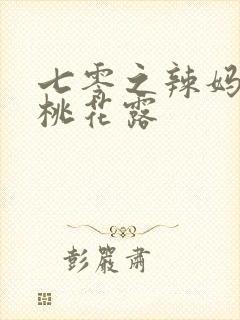 七零之辣妈
桃花露
彭严肃